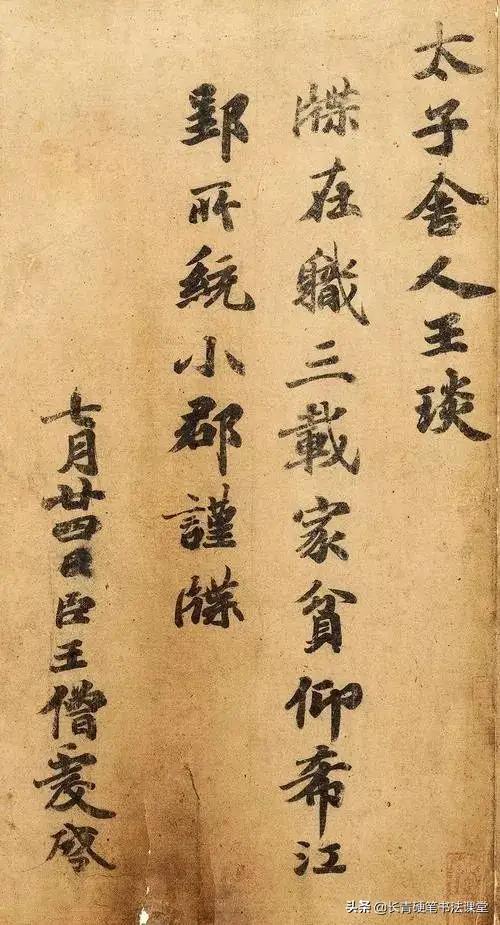 太子舍人王琰
牒在職三載家貧仰希江
郢所統小郡謹牒
七月廿四日臣王僧虔啓
头条 @长青硬笔书法课堂